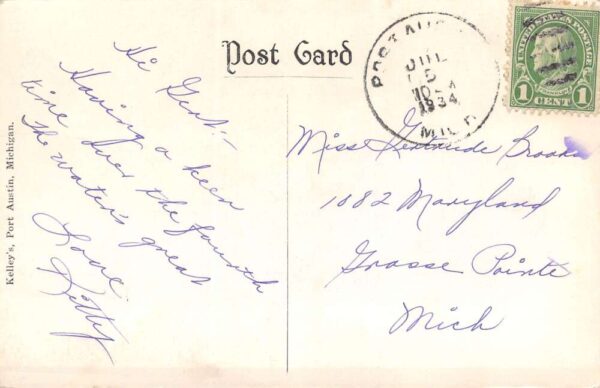 Post Card
Hi Gert:-
Having a keen
time over the fourth
The water's great
Love
Kelley's, Port Austin, Michigan.
PORT AUS
JUL
5
10 - A
1934
MICH.
UNITED STATES POSTAGE
1 CENT 1
Miss Gertrude Brooks
1082 Maryland
Grosse Pointe
Mich